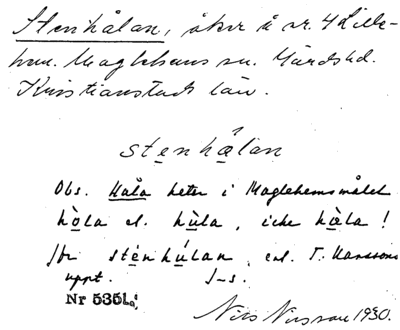 Stenhålan, åker å nr. 4 Lille-
hem. Maglehems sn. Gärds hd.
Kristianstads län.
stenhålan
Obs. Håla heter i Maglehemsmålet
hòla el. hùla, icke hòla!
Jfr sténhúlan, enl. T. Hanssons
uppt. J-s.
Nr 5351
Nils Nilsson 1930.